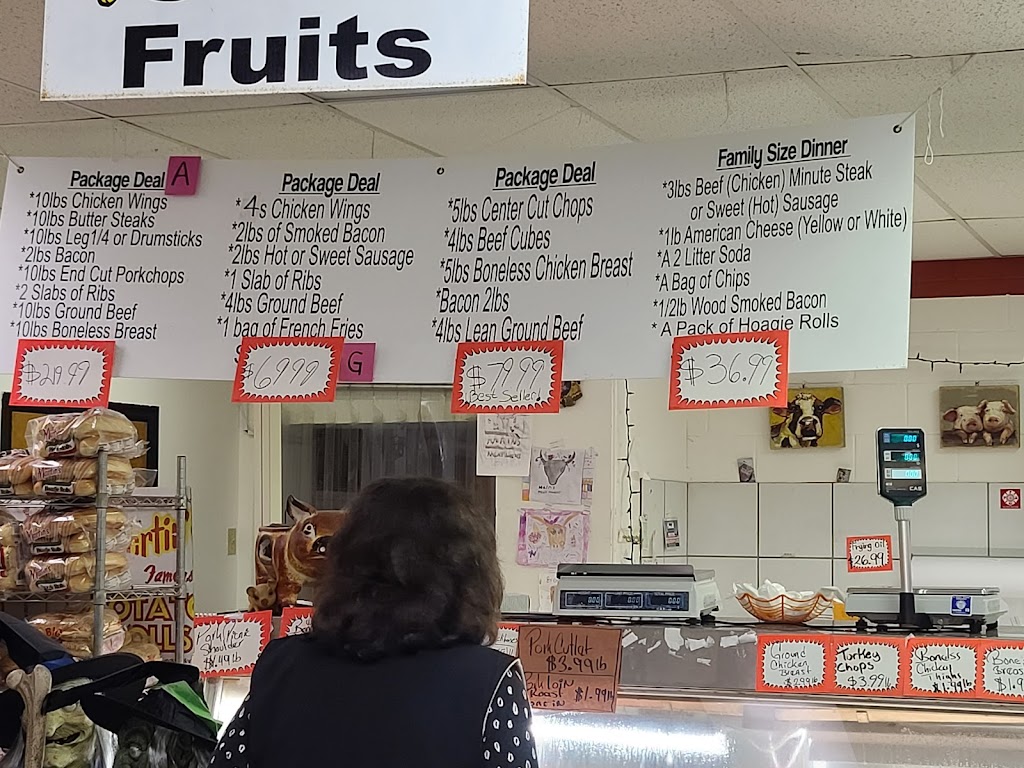 Fruits
Package Deal A
*10lbs Chicken Wings
*10lbs Butter Steaks
*10lbs Leg1/4 or Drumsticks
*2lbs Bacon
*10lbs End Cut Porkchops
*2 Slabs of Ribs
*10lbs Ground Beef
*10lbs Boneless Breast
$219.99
Package Deal
*4s Chicken Wings
*2lbs of Smoked Bacon
*2lbs Hot or Sweet Sausage
*1 Slab of Ribs
*4lbs Ground Beef
*1 bag of French Fries
$69.99
G
Package Deal
*5lbs Center Cut Chops
*4lbs Beef Cubes
*5lbs Boneless Chicken Breast
*Bacon 2lbs
*4lbs Lean Ground Beef
$79.99
Best Seller!
Family Size Dinner
*3lbs Beef (Chicken) Minute Steak
or Sweet (Hot) Sausage
*1lb American Cheese (Yellow or White)
*A 2 Litter Soda
*A Bag of Chips
*1/2lb Wood Smoked Bacon
* A Pack of Hoagie Rolls
$36.99
CAS
Frying Oil
$26.99
Famous
POTATO
ROLLS
Shoulder
Pork Cutlat
$3.99lb
Roast $1.99lb
Ground
Chicken
Breast
$2.99lb
Turkey
Chops
$3.99lb
Bonelss
Chicky
Thighs
$1.99lb
Bone
Breast